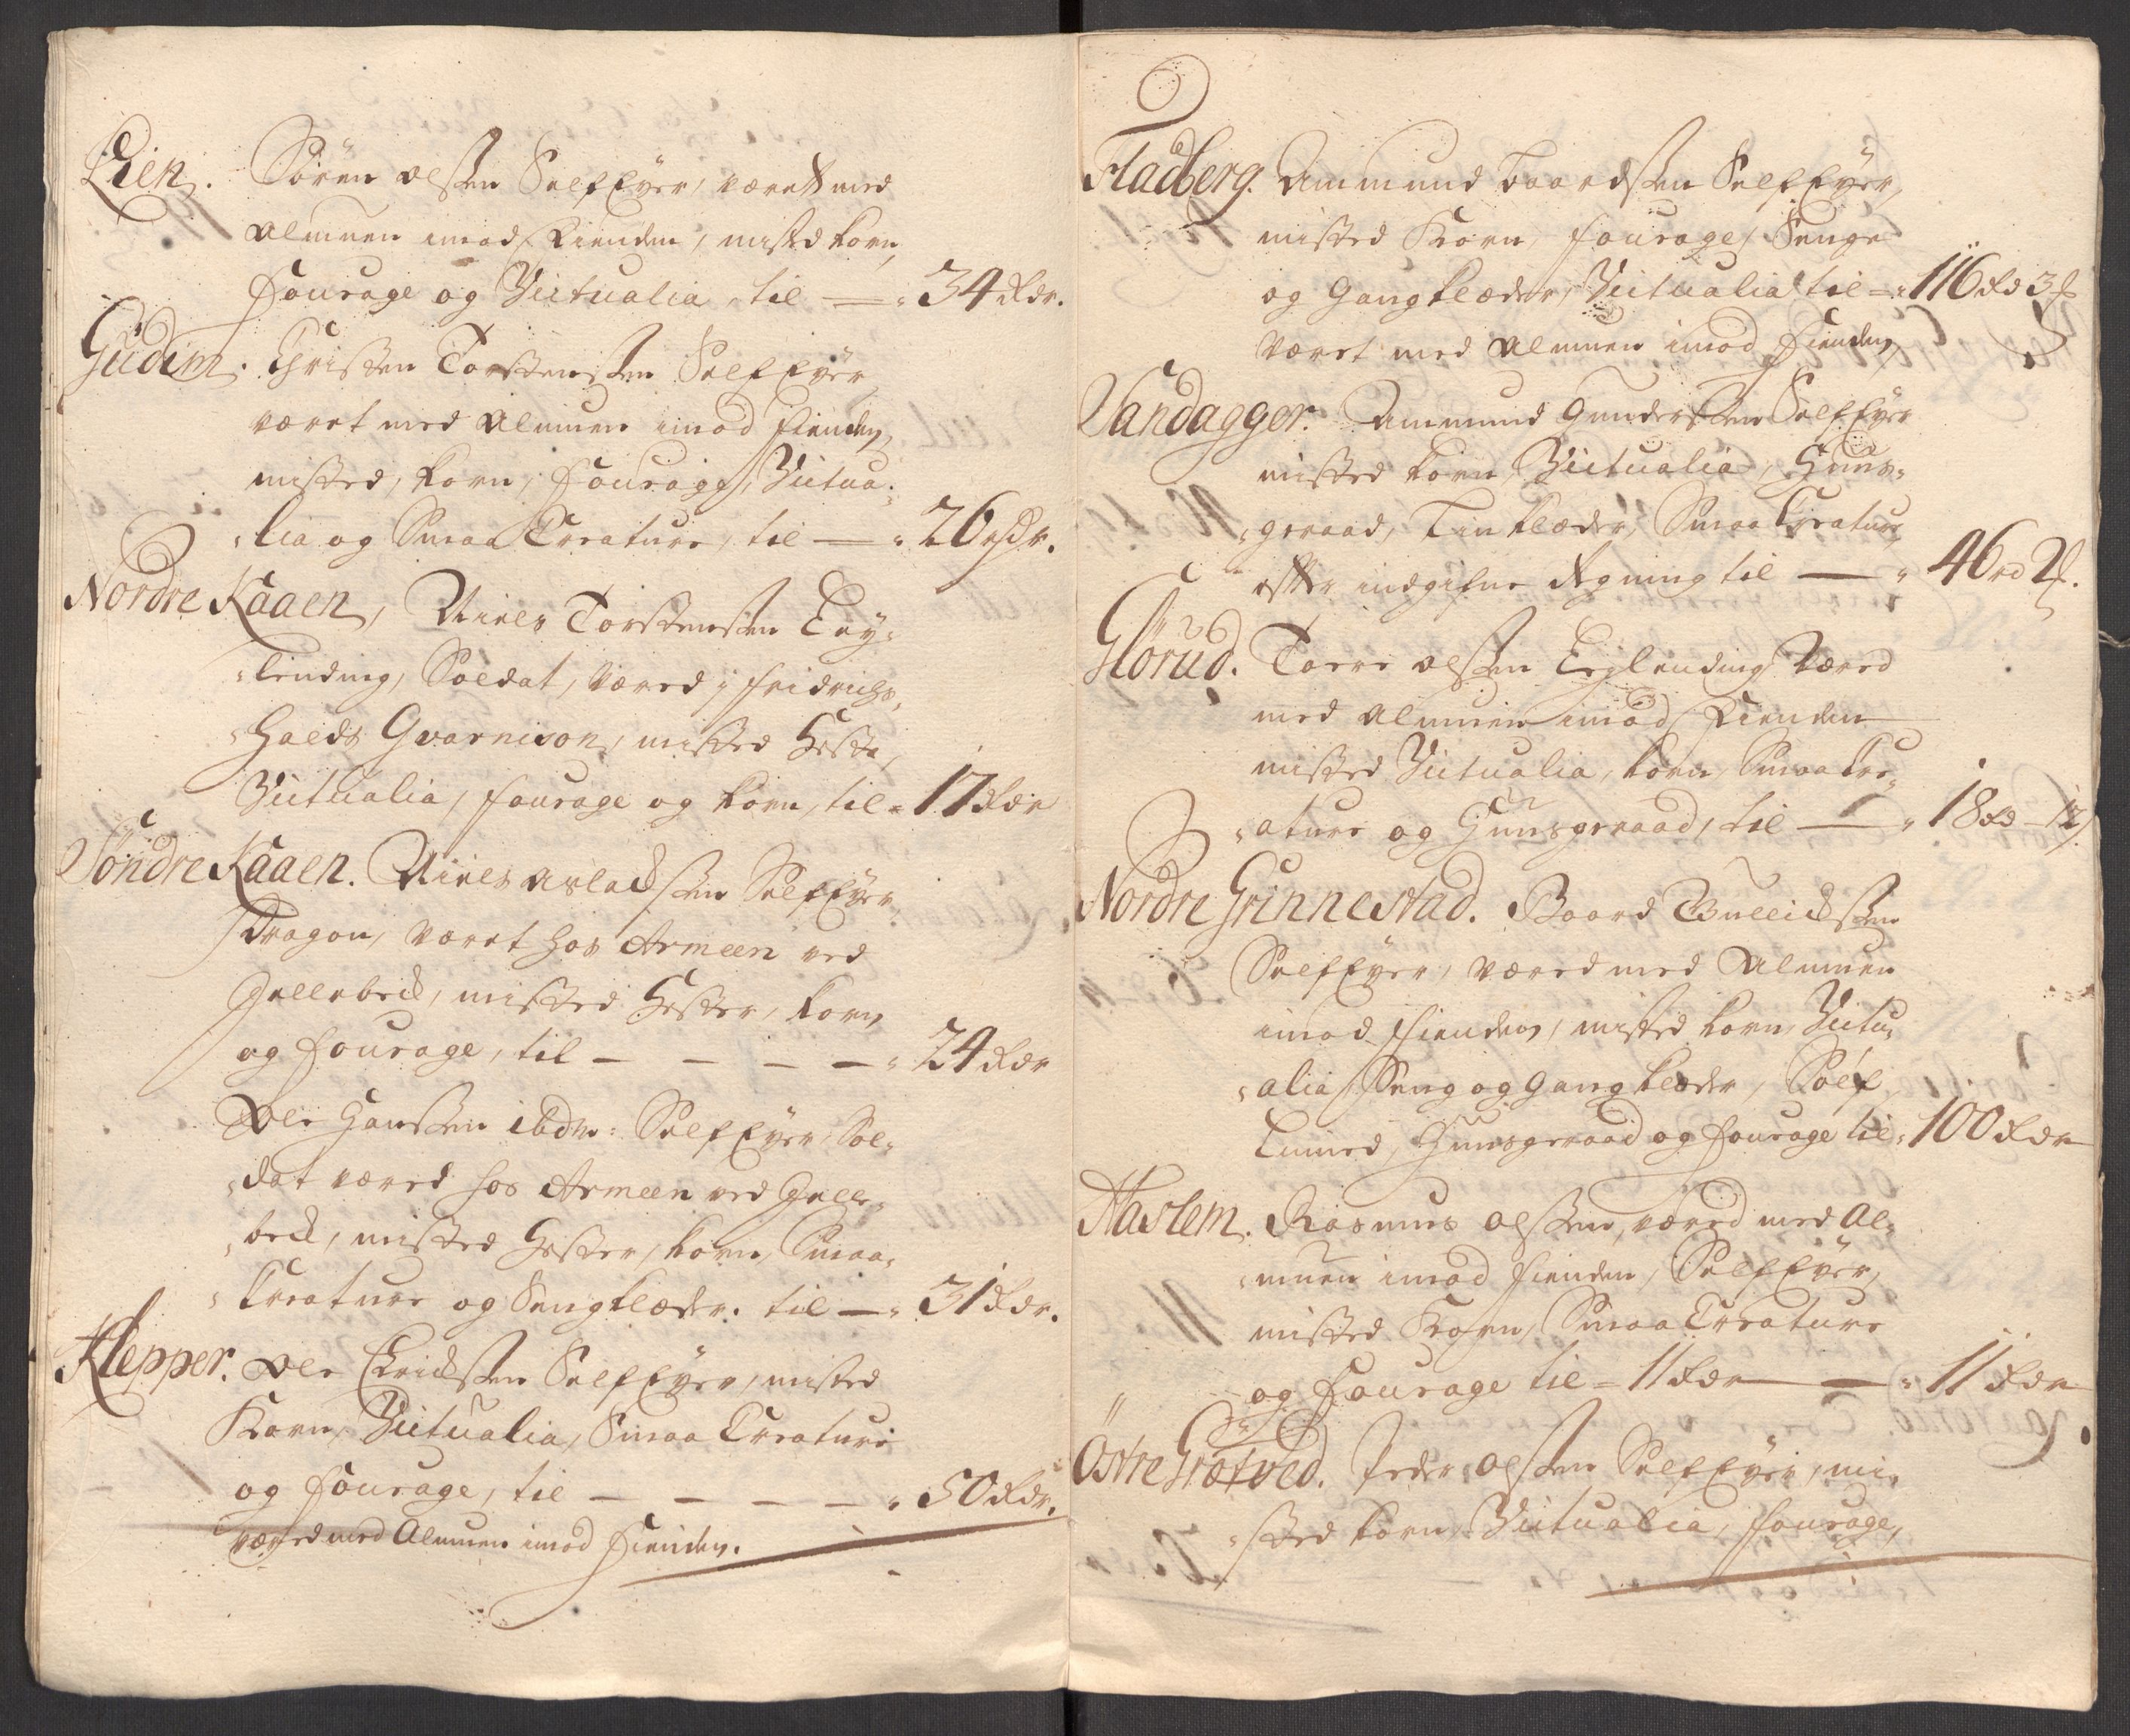 Lien. Sören olssen Self Eyer, værett med
Almuen imod Fienden, misted korn,
Fourage og Victualia til — 34 Rdr.
Gudim. Christen Torstenssen Self Eyer
været med Almuen imod Fienden,
misted, korn, Fourage, Victua-
lia og Smaa Creature, til — 26 rdr.
Nordre Kaaen, Niels Torstenssen Ley-
lending, Soldat, væred i Fridrichs-
Halds Gvarnison, misted Heste,
Victualia, fourage og korn, til 17 Rdr
Söndre Kaaen. Niels Aslachssen Self Eyer
Dragon, været hos Armeen ved
Gellebech, misted Hester, korn
og Fourage, til — — — — 24 Rdr
Ole Hanssen ibdm: Self Eyer, Sol-
dat væred hos Armeen ved Gelle-
bech, misted Hester, korn, Smaa-
Creature og Sengklæder. til — 31 Rdr.
Klepper. Ole Erichssen Self Eyer, misted
Korn, Victualia, Smaa Creature
og Fourage, til — — — — 50 Rdr.
væred med Almuen imod Fienden.
Fladberg. Ammund Baardssen Self Eyer,
misted Korn, fourage, Senge
og Gangklæder, Victualia til — 116 Rd 3 f
Været med Almuen imod Fienden,
Vandagger. Ammund Gunderssen Self Eyer
misted korn, Victualia, Huus-
geraad, Klæder, Smaa Creature,
efter indgifne Regning til — 46 rd 2 f.
Glörud. Tore olssen Leylending Væred
med Almuen imod Fienden
misted Victualia, korn, Smaa Cre-
ature og Huusgeraad, til — 18 Rd — 12 s
Nordre Grinnestad. Baard Gullichssen
Self Eyer, væred med Almuen
imod Fienden, misted korn, Victu-
alia, Seng og Gang klæder, Sölf
Huusgeraad og Fourage til 100 Rdr
Haslem. Rasmus Olssen, væred med Al-
muen imod Fienden, Self Eyer,
misted Korn, Smaa Creature
og Fourage til — 11 Rdr — — 11 Rdr
Östre Grætved. Peder Olssen Self Eyer, mi-
sted korn, Victualia, Fourage,